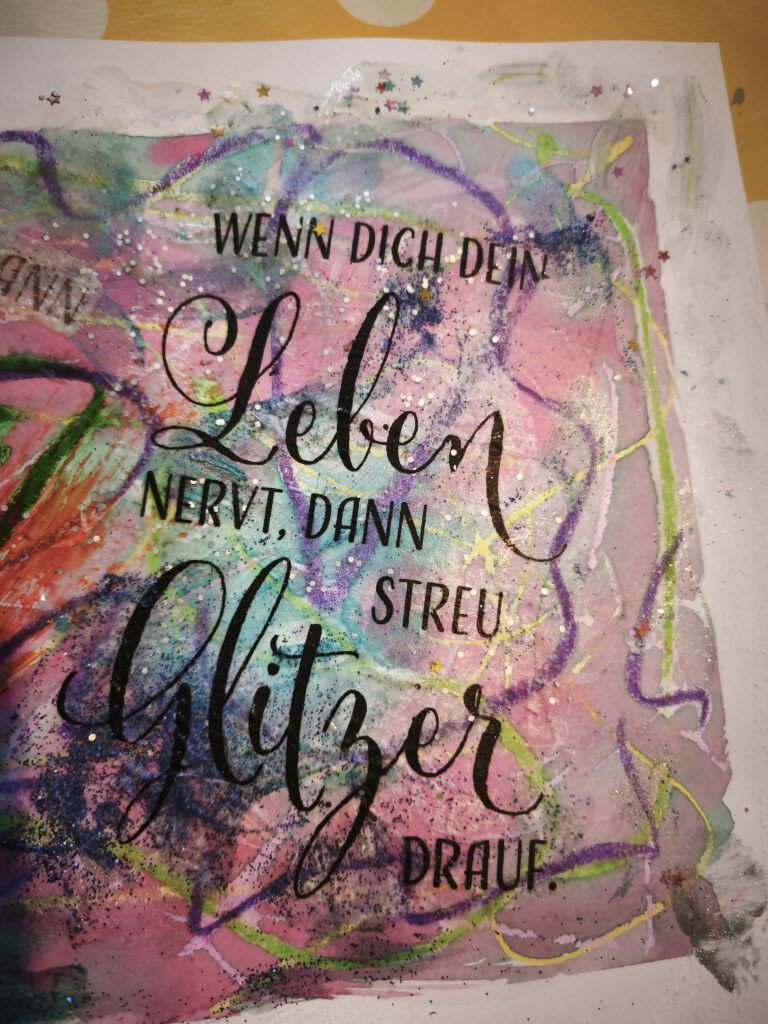 WENN DICH DEIN
Leben
NERVT, DANN
STREU
Glitzer
DRAUF.